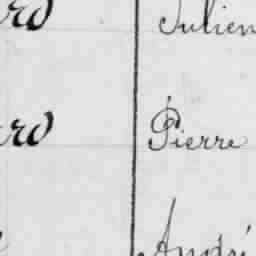 Julien
Pierre
André